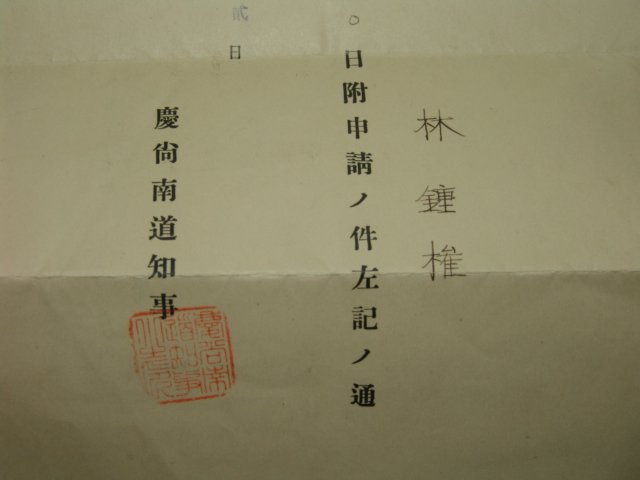 林鍾權
日附申請ノ件左記ノ通
日
慶尙南道知事